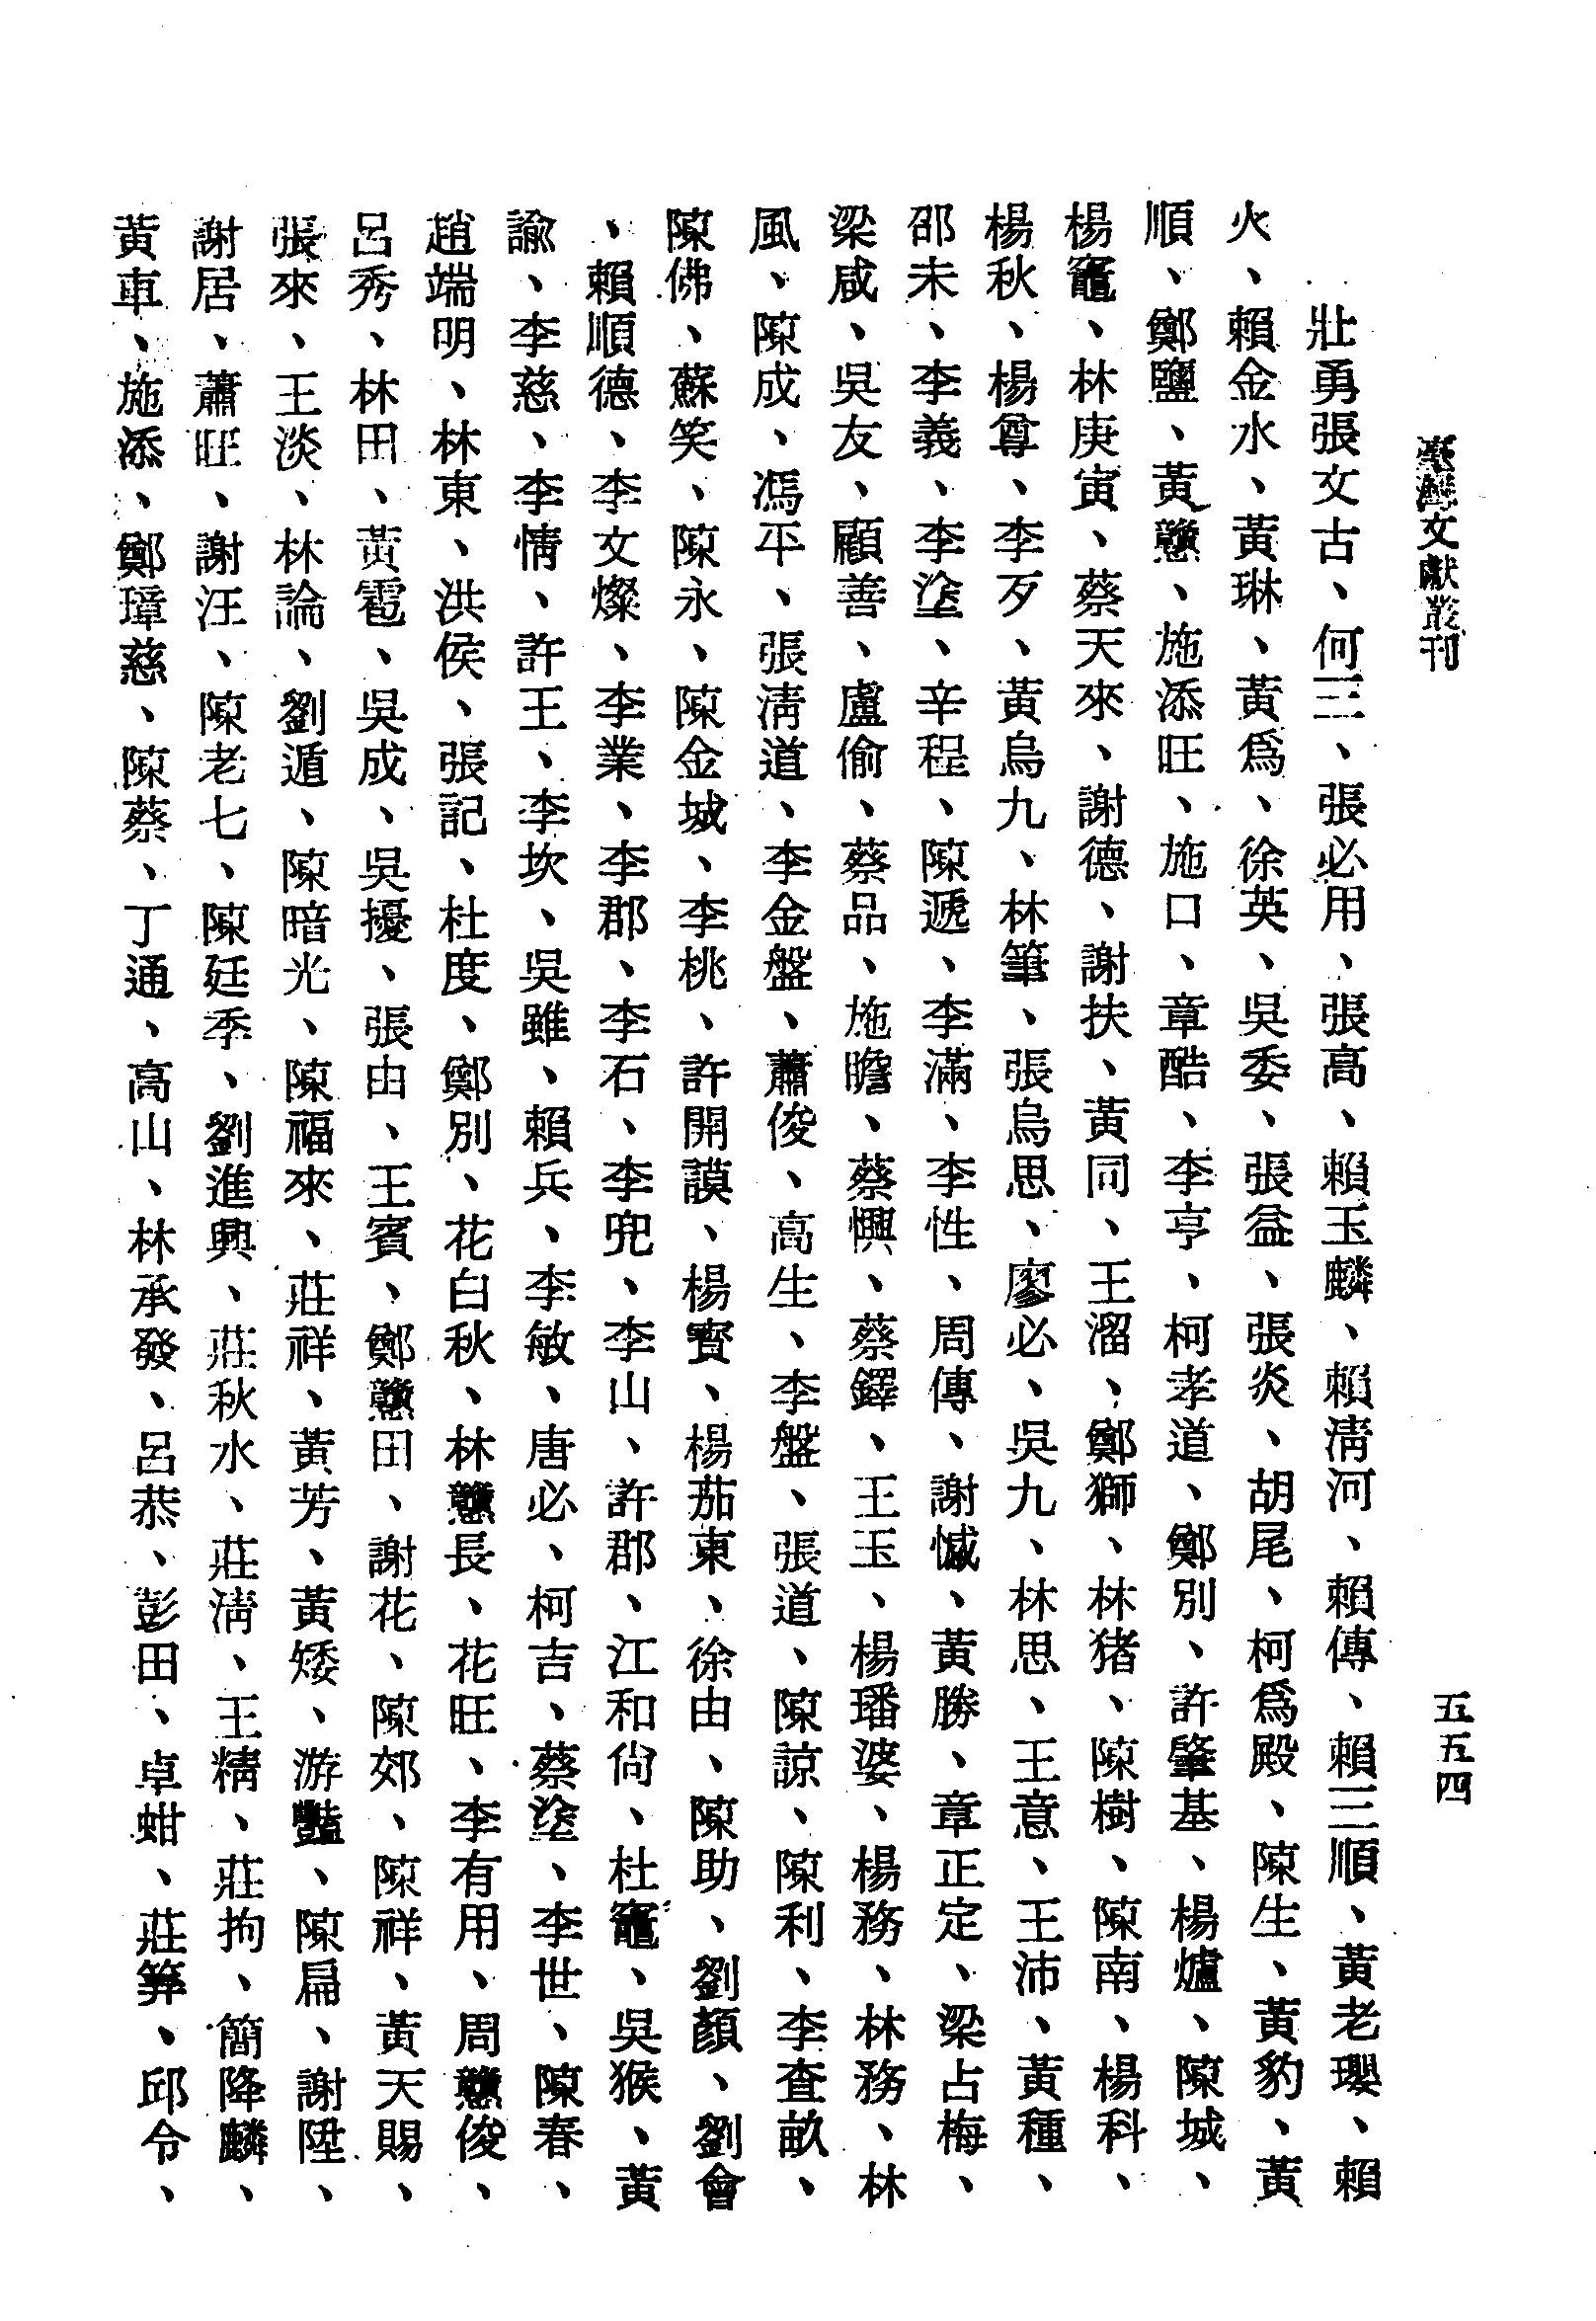 臺灣文獻叢刊
五五四
壯勇張文古、何三、張必用、張高、賴玉麟、賴淸河、賴傳、賴三順、黃老瓔、賴
火、賴金水、黃琳、黃爲、徐英、吳委、張益、張炎、胡尾、柯爲殿、陳生、黃豹、黃
順、鄭鹽、黃戇、施添旺、施口、章酷、李亨、柯孝道、鄭別、許肇基、楊爐、陳城、
楊竈、林庚寅、蔡天來、謝德、謝扶、黃同、王溜、鄭獅、林猪、陳樹、陳南、楊科、
楊秋、楊尊、李歹、黃烏九、林筆、張烏思、廖必、吳九、林思、王意、王沛、黃種、
邵未、李義、李淦、辛程、陳遞、李滿、李性、周傳、謝憾、黃勝、章正定、梁占梅、
梁咸、吳友、顧善、盧偷、蔡品、施瞻、蔡懊、蔡鐸、王玉、楊璠婆、楊務、林務、林
風、陳成、馮平、張淸道、李金盤、蕭俊、高生、李盤、張道、陳諒、陳利、李查畝、
陳佛、蘇笑、陳永、陳金城、李桃、許開謨、楊賓、楊茄東、徐由、陳助、劉顏、劉會
、賴順德、李文燦、李業、李郡、李石、李兜、李山、許郡、江和尙、杜竈、吳猴、黃
諭、李慈、李情、許王、李坎、吳雖、賴兵、李敏、唐必、柯吉、蔡塗、李世、陳春、
趙端明、林東、洪侯、張記、杜度、鄭別、花白秋、林戇長、花旺、李有用、周戇俊、
呂秀、林田、黃雹、吳成、吳擾、張由、王賓、鄭戇田、謝花、陳郊、陳祥、黃天賜、
張來、王淡、林論、劉遁、陳暗光、陳福來、莊祥、黃芳、黃矮、游豔、陳扁、謝陞、
謝居、蕭旺、謝汪、陳老七、陳廷季、劉進興、莊秋水、莊淸、王精、莊拘、簡降麟、
黃車、施添、鄭璋慈、陳蔡、丁通、高山、林承發、呂恭、彭田、卓蚶、莊算、邱令、